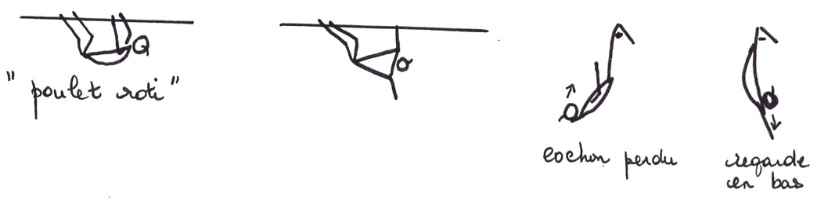 " poulet roti "
cochon perdu
regarde
en bas